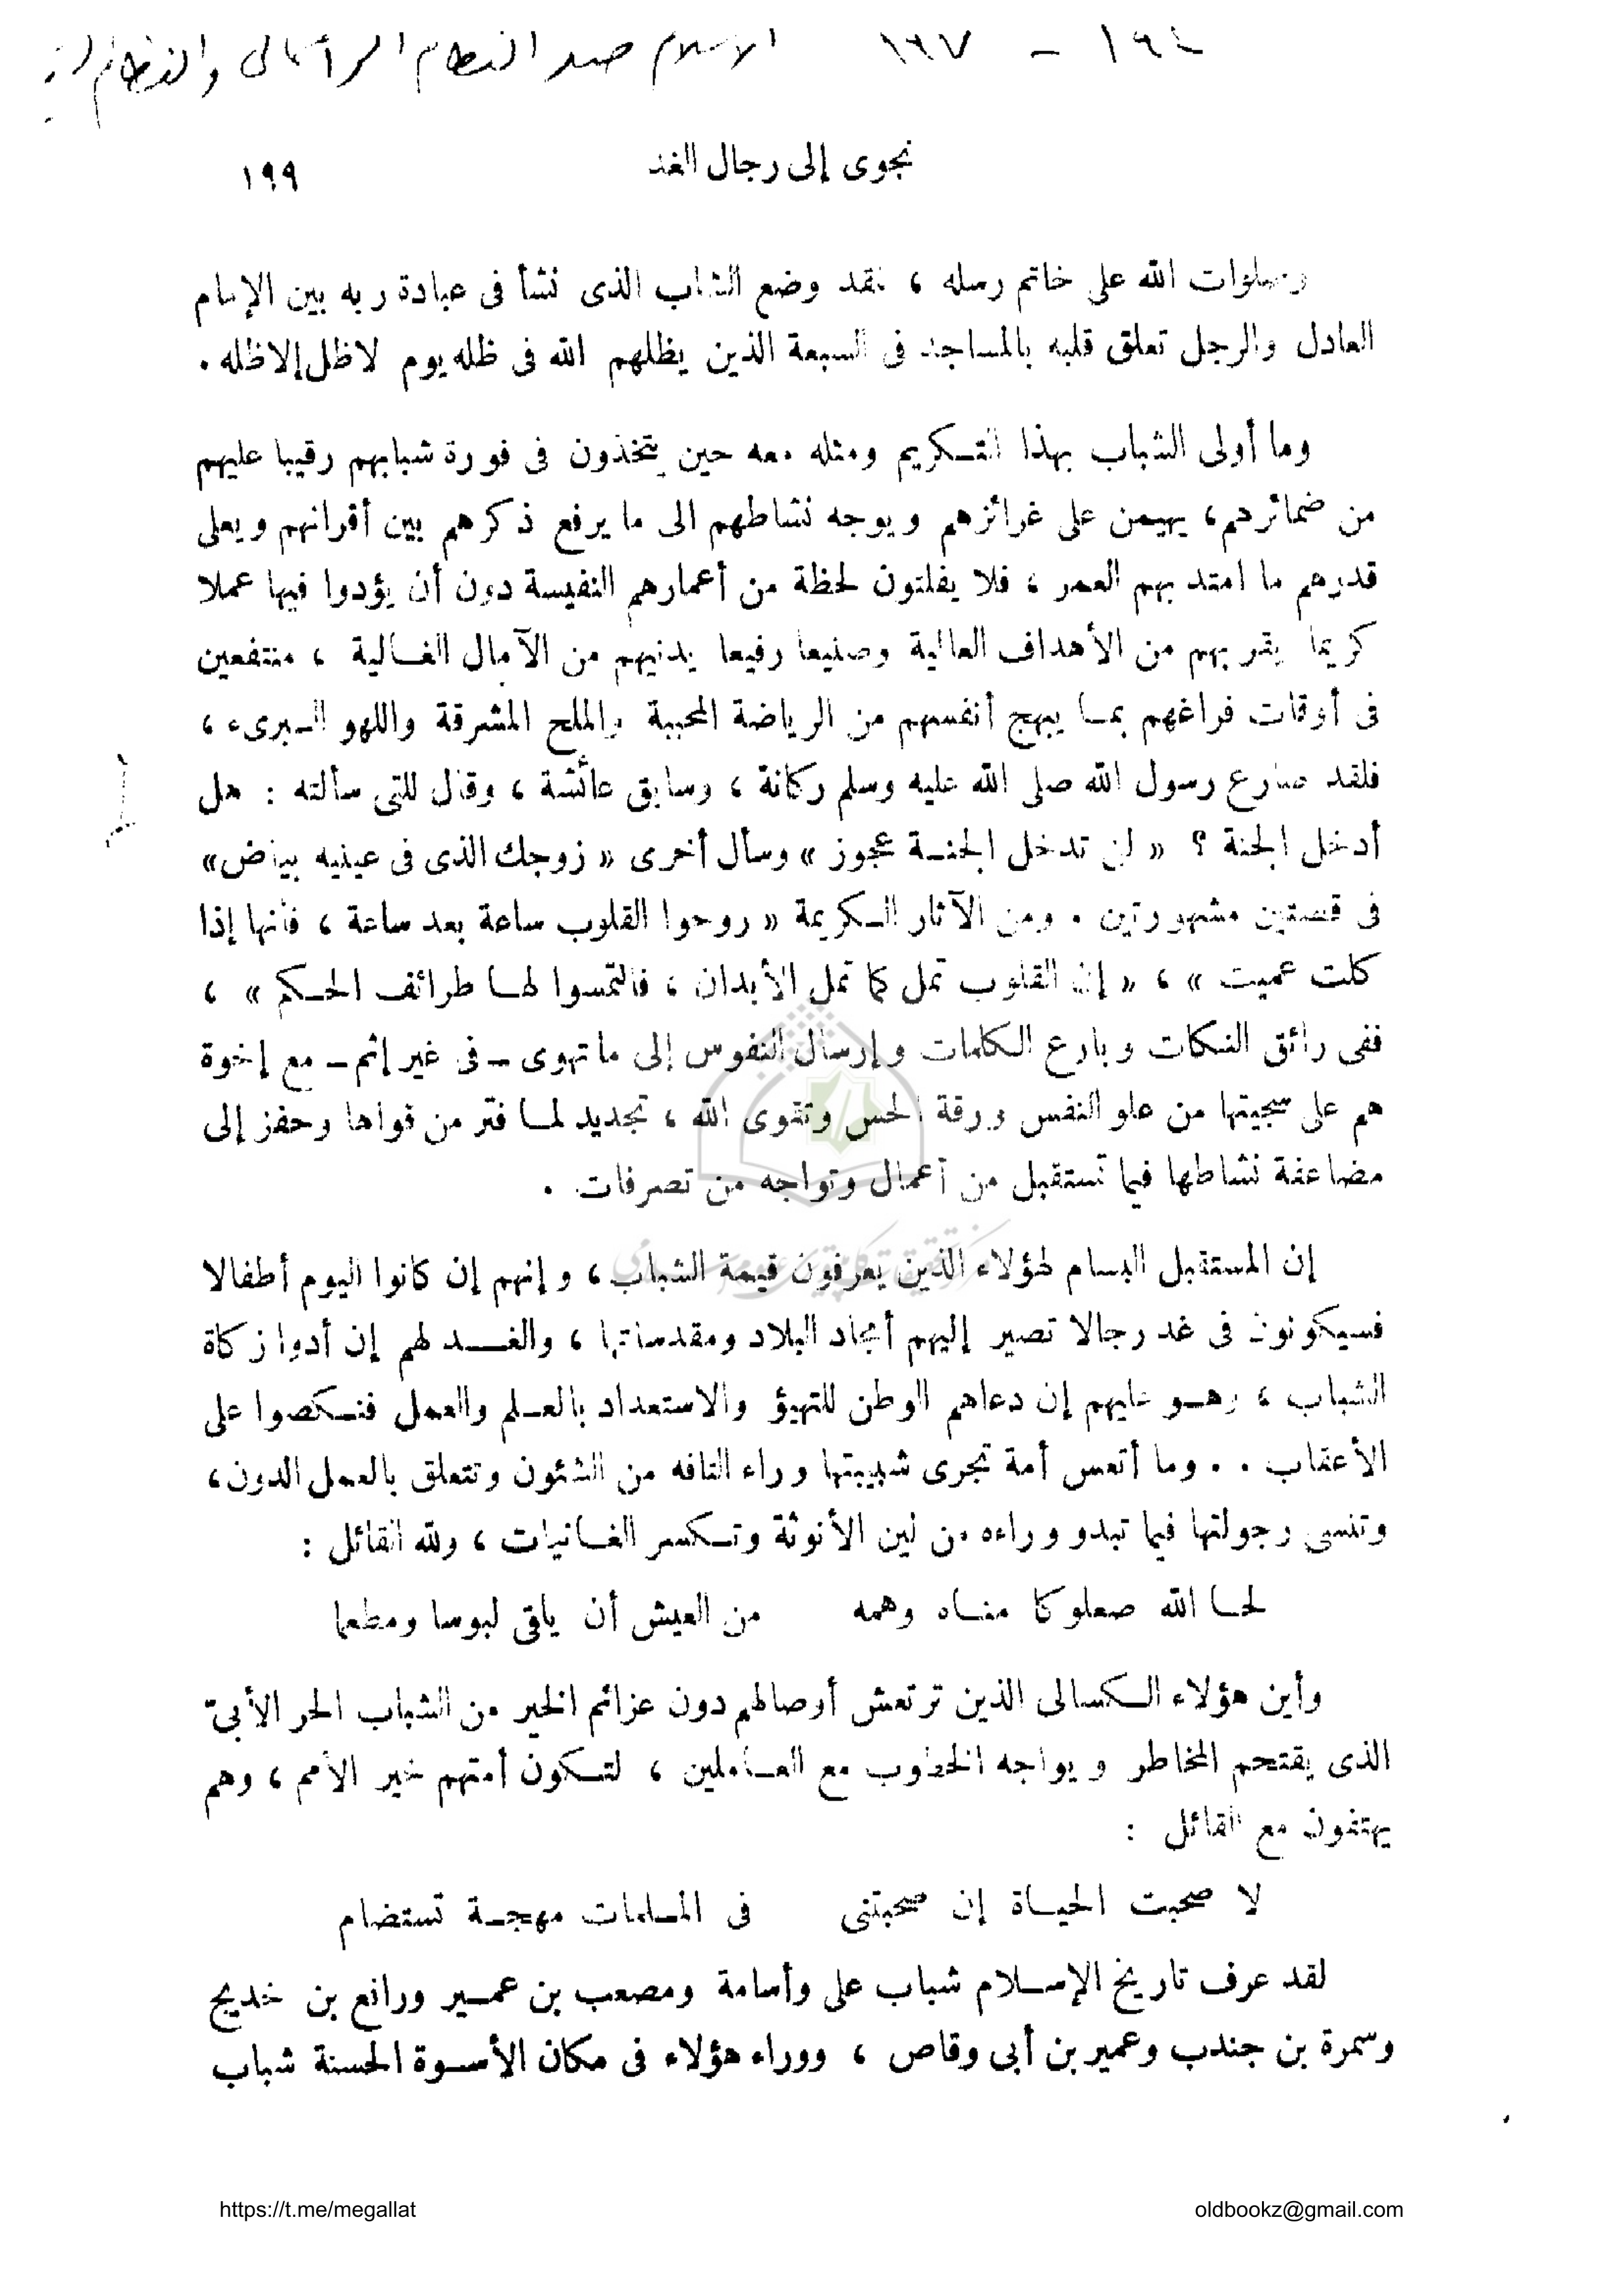 ١٩٤ - ١٩٧ الاسلام ضد النظام الرأسمالى والنظام
نجوى إلى رجال الغد
١٩٩
وصلوات الله على خاتم رسله ، فقد وضع الشاب الذى نشأ فى عبادة ربه بين الإمام
العادل والرجل تعلق قلبه بالمساجد فى السبعة الذين يظلهم الله فى ظله يوم لاظل إلاظله .
وما أولى الشباب بهذا التكريم ومثله معه حين يتخذون فى فورة شبابهم رقيبا عليهم
من ضمائرهم، يهيمن على غرائزهم ويوجه نشاطهم الى ما يرفع ذكرهم بين أقرانهم ويعلى
قدرهم ما امتد بهم العمر ، فلا يفلتون لحظة من أعمارهم النفيسة دون أن يؤدوا فيها عملا
كريما يقربهم من الأهداف العالية وصنيعا رفيعا يدنيهم من الآمال الغالية ، منتفعين
فى أوقات فراغهم بما يبهج أنفسهم من الرياضة المحببة والملح المشرقة واللهو البرىء ،
فلقد صارع رسول الله صلى الله عليه وسلم ركانة ، وسابق عائشة ، وقال للتى سألته : هل
أدخل الجنة ؟ « لن تدخل الجنة عجوز » وسأل أخرى « زوجك الذى فى عينيه بياض»
فى قصتين مشهورتين . ومن الآثار الكريمة « روحوا القلوب ساعة بعد ساعة ، فأنها إذا
كلت عميت » ، « إن القلوب تمل كما تمل الأبدان ، فالتمسوا لها طرائف الحكم » ،
ففى رائق النكات وبارع الكلمات وإرسال النفوس إلى ماتهوى – فى غير إثم – مع إخوة
هم على سجيتها من علو النفس ورقة الحس وتقوى الله ، تجديد لما فتر من قواها وحفز إلى
مضاعفة نشاطها فيما تستقبل من أعمال وتواجه من تصرفات .
إن المستقبل البسام لهؤلاء الذين يعرفون قيمة الشباب ، وإنهم إن كانوا اليوم أطفالا
فسيكونون فى غد رجالا تصير إليهم أمجاد البلاد ومقدساتها ، والغد لهم إن أدوا زكاة
الشباب ، وهو عليهم إن دعاهم الوطن للتهيؤ والاستعداد بالعلم والعمل فنكصوا على
الأعقاب . . وما أتعس أمة تجرى شبيبتها وراء التافه من الشئون وتتعلق بالعمل الدون،
وتنسى رجولتها فيما تبدو وراءه من لين الأنوثة وتكسر الغانيات ، ولله القائل :
لحا الله صعلوكا مناه وهمه من العيش أن يلقى لبوسا ومطعما
وأين هؤلاء الكسالى الذين ترتعش أوصالهم دون عزائم الخير من الشباب الحر الأبىّ
الذى يقتحم المخاطر ويواجه الخطوب مع العاملين ، لتكون أمتهم خير الأمم ، وهم
يهتفون مع القائل :
لا صحبت الحياة إن صحبتنى فى الملمات مهجة تستضام
لقد عرف تاريخ الإسلام شباب على وأسامة ومصعب بن عمير ورافع بن خديج
وسمرة بن جندب وعمير بن أبى وقاص ، ووراء هؤلاء فى مكان الأسوة الحسنة شباب
https://t.me/megallat
oldbookz@gmail.com